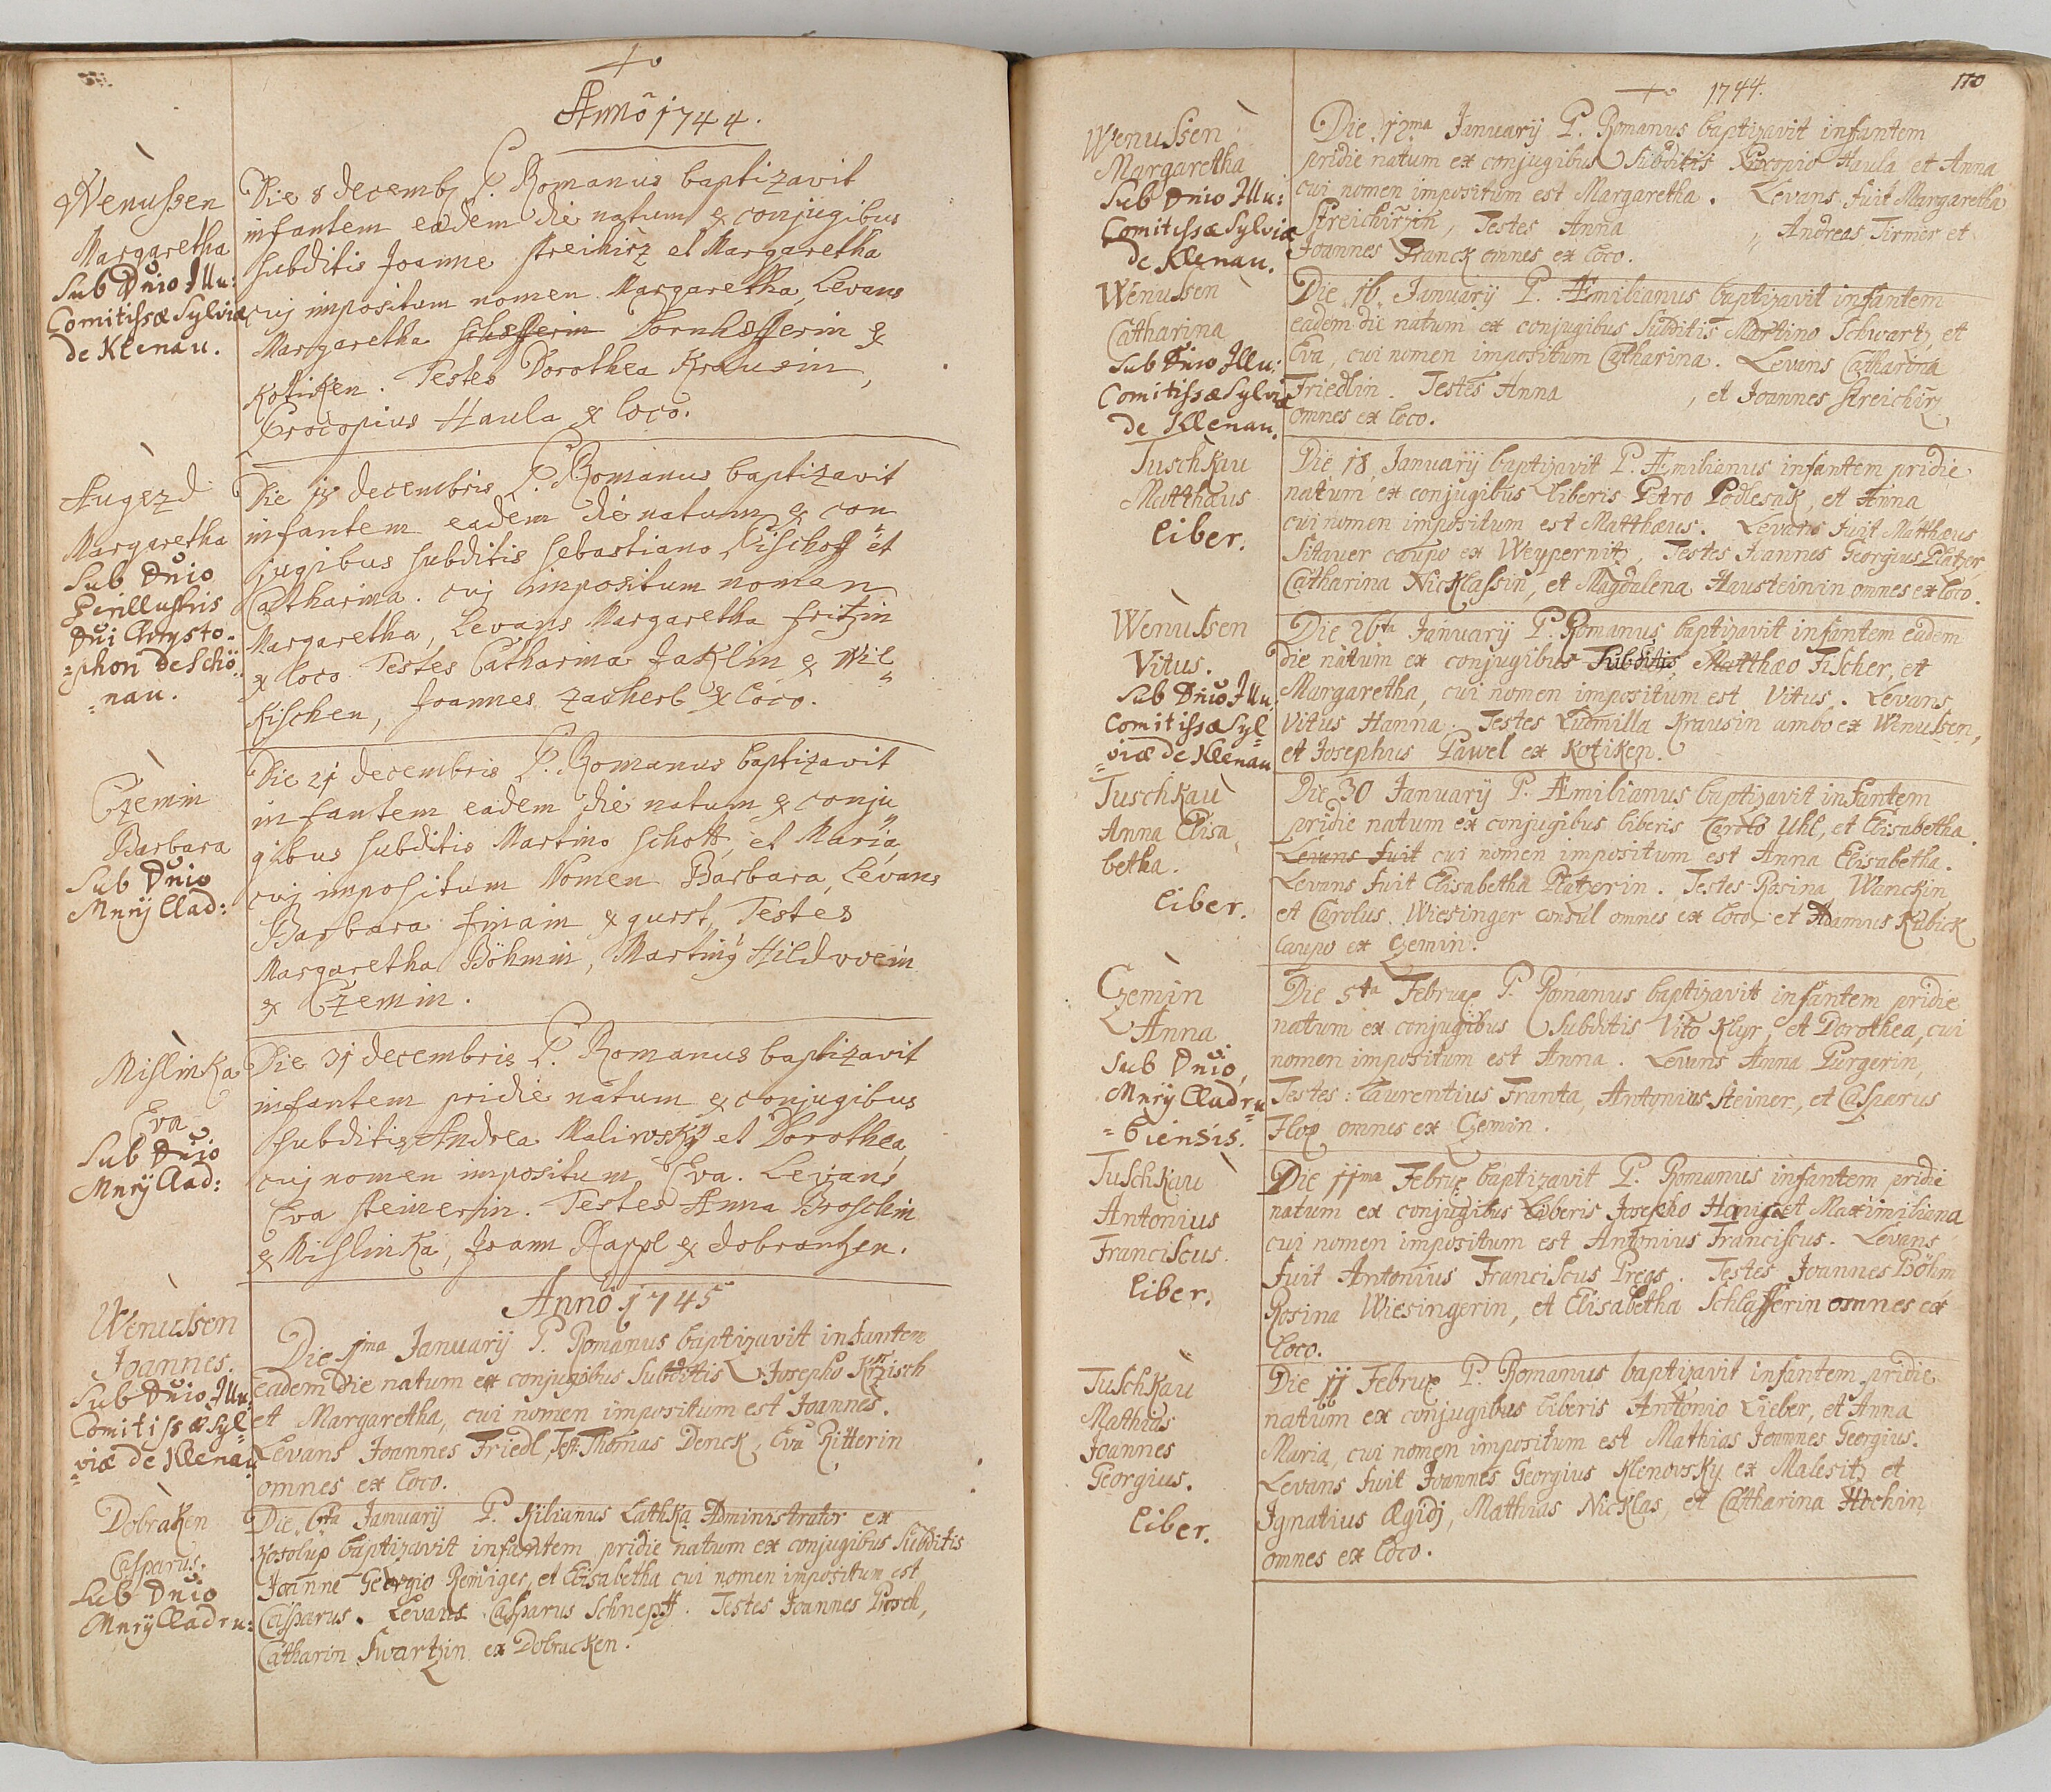 Anno 1744.
Wenussen
Margaretha
Sub Dnio Illu:
Comitissæ Sylviæ
de Klenau.
Die 8 decemb P. Romanus baptizavit
infantem eadem die natum ex conjugibus
subditis Joanne streihirz et Margaretha
cuj impositum nomen Margaretha, Levans
Margaretha schefferin Dornhefferin ex
Kotiken. Testes Dorothea Krausin,
Procopius Haula ex loco.
Augezd
Margaretha
Sub Dnio
Perillustris
Dni Chrysto-
=phori de Schö
=nau.
Die decembris P. Romanus baptizavit
infantem eadem die natum ex con
jugibus subditis sebastiano Fischoff et
Catharina. cuj impositum noman
Margaretha, Levans Margaretha fritzin
ex loco Testes Catharina Jaklin ex Wil
Kischen, Joannes Zacherl ex loco.
Czemin
Barbara
Sub Dnio
Mnrij Clad:
Die 21 decembris P. Romanus baptizavit
infantem eadem die natum ex conju
gibus subditis Martino schott, et Maria,
cuj impositum Nomen Barbara, Levans
Barbara ex gurst, Testes
Margaretha Böhmin, Marting Hildwein
ex Czemin.
Mislinka
Eva
Sub Dnio
Mnrij Clad:
Die 31 decembris P. Romanus baptizavit
infantem pridie natum ex conjugibus
subditis Andrea Malirosky et Dorothea,
cuj nomen impositum Eva. Levans
Eva steinerin. Testes Anna Broschin
ex Mislinka, Joann Rappl ex dobrantzen.
Anno 1745
Wenussen
Joannes.
Sub Dnio Illu.
Comitissæ Syl=
=viæ de Klenau
Die 1ma Januarij P. Romanus baptizavit infantem
eadem die natum ex conjugibus Subditis Josepho Krzisch
et Margaretha, cui nomen impositum est Joannes.
Levans Joannes Friedl, Test: Thomas Denck, Eva Ritterin
omnes ex loco.
Dobraken
Casparus.
Sub Dnio
Mnrij Cladru:
Die 6ta Januarij P. Kilianus Lathka Administrator ex
Kosolup baptizavit infantem pridie natum ex conjugibus Subditis
Joanne Georgio Remiger, et Elisabetha cui nomen impositum est
Casparus. Levans Casparus Schnepff. Testes Joannes Pirsch,
Catharin Swartzin ex Dobracken.
1744.
170
Wenussen
Margaretha
Sub Dnio Illu:
Comitissæ Sylviæ
de Klenau.
Die 12ma Januarij P. Romanus baptizavit infantem
pridie natum ex conjugibus Subditis Procopio Haula et Anna
cui nomen impositum est Margaretha. Levans fuit Margaretha
Streichirzin, Testes Anna , Andreas Tirmer et
Joannes Franck omnes ex loco.
Wenussen
Catharina
Sub Dnio Illu:
Comitissæ Sylviæ
de Klenau.
Die 16. Januarij P. Æmilianus baptizavit infantem
eadem die natum ex conjugibus Subditis Martino Schwartz, et
Eva, cui nomen impositum Catharina. Levans Catharina
Friedlin. Testes Anna , et Joannes Streichirz
omnes ex loco.
Tuschkau
Matthæus
liber.
Die 18 Januarij baptizavit P. Æmilianus infantem pridie
natum ex conjugibus liberis Petro Podlesak, et Anna
cui nomen impositum est Matthæus. Levans fuit Matthæus
Sitauer caupo ex Weypernitz, Testes Joannes Georgius Platzer,
Catharina Nicklassin, et Magdalena Hausteinin omnes ex loco.
Wenussen
Vitus.
Sub Dnio Illu.
Comitissæ Syl=
=viæ de Klenau
Die 26ta Januarij P. Romanus baptizavit infantem eadem
die natum ex conjugibus Subditis Matthæo Fischer, et
Margaretha, cui nomen impositum est Vitus. Levans
Vitus Hanna. Testes Ludmilla Krausin ambo ex Wenussen,
et Josephus Pawel ex Kotiken.
Tuschkau
Anna Elisa
betha.
liber.
Die 30 Januarij P. Æmilianus baptizavit infantem
pridie natum ex conjugibus liberis Carolo Uhl, et Elisabetha.
Levans fuit cui nomen impositum est Anna Elisabetha.
Levans fuit Elisabetha Platzerin. Testes Rosina Wanckin
et Carolus Wiesinger consul omnes ex loco, et Adamus Kubick
caupo ex Czemin.
Czemin
Anna
Sub Dnio
Mnrij Cladru=
=biensis.
Die 5ta Februæ P. Romanus baptizavit infantem pridie
natum ex conjugibus Subditis Vito Klyr, et Dorothea, cui
nomen impositum est Anna. Levans Anna Purgerin,
Testes: Laurentius Franta, Antonius Steiner, et Casparus
Flox omnes ex Czemin.
Tuschkau
Antonius
Franciscus.
liber.
Die 11ma Februæ baptizavit P. Romanus infantem pridie
natum ex conjugibus Liberis Josepho Honig et Maximiliana
cui nomen impositum est Antonius Franciscus. Levans
fuit Antonius Franciscus Pregs. Testes Joannes Böhm
Rosina Wiesingerin, et Elisabetha Schlafferin omnes ex
loco.
Tuschkau
Mathias
Joannes
Georgius.
liber.
Die 11 Februæ P. Romanus baptizavit infantem pridie
natum ex conjugibus liberis Antonio Lieber, et Anna
Maria, cui nomen impositum est Mathias Joannes Georgius.
Levans fuit Joannes Georgius Klenovsky ex Malesitz et
Ignatius Ægidj, Mathias Nicklas, et Catharina Hochin
omnes ex loco.